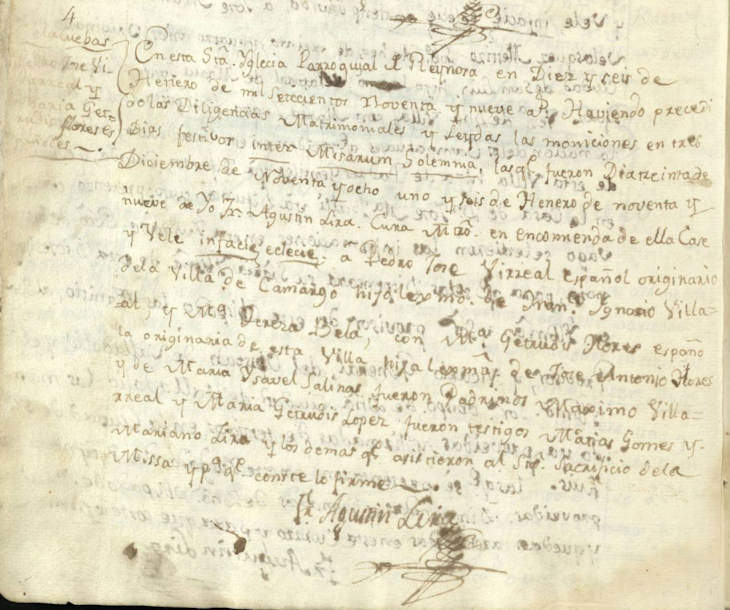 4
Pedro Jose Vi
rreal y
Maria Get-
Flores es
En esta Sta. Yglecia Parroquial d Reynosa en Diez y seis de
Henero de mil setecientos noventa y nueve as. Haviendo precedi
do las Diligencias Matrimoniales y Leydas las moniciones en tres
Dias festivos inter Misarum Solemnia, las qs. fueron Dia treinta de
Diciembre de Noventa y ocho uno y seis de Henero de noventa y
nueve de Yo Fr. Agustin Lira. Cura Mtro. en encomienda de ella Case
y Vele infacie eclecie, a Pedro Jose Virreal español originario
dela Villa de Camargo hijo lexmo. de Fran. Ygnacio Villa=
al, y Ma. Tereza Dela, con Ma. Getrudis Flores españo
la originaria de esta Villa hija lexma. de Jose Antonio Flores
y de Maria Ysavel Salinas fueron Padrinos Maximo Villa=
rreal y Maria Getrudis Lopez fueron testigos Matias Gomes y
Mariano Lira y los demas qe. asistieron al Sto. Sacrificio dela
Missa y pa. qe. conste lo firme
Fr. Agustin Lira